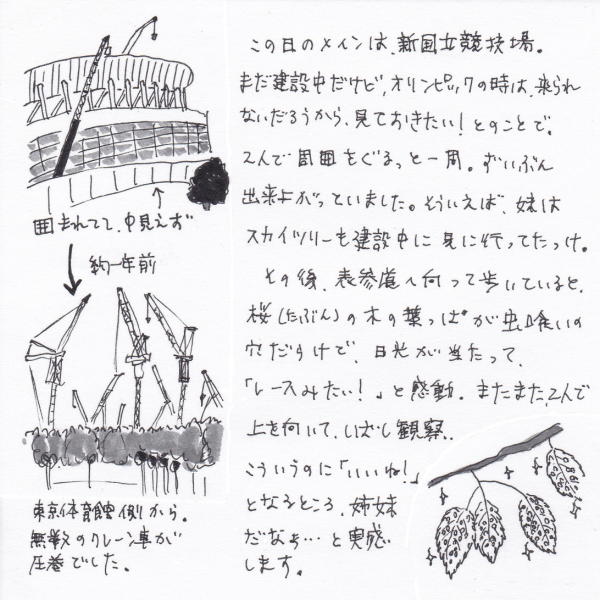 この日のメインは、新国立競技場。
まだ建設中だけど、オリンピックの時は、来られ
ないだろうから、見ておきたい！とのことで。
2人で周囲をぐるっと一周。ずいぶん
出来上がっていました。そういえば、妹は
スカイツリーも建設中に見に行ってたっけ。
その後、表参道へ向って歩いていると、
桜（たぶん）の木の葉っぱが虫喰いの
穴だらけで、日光が当たって、
「レースみたい！」と感動。またまた2人で
上を向いて、しばし観察。
こういうのに「いいね！」
となるところ、姉妹
だなぁ…と実感
します。
囲まれてて、中見えず
約一年前
東京体育館側から。
無数のクレーン車が
圧巻でした。